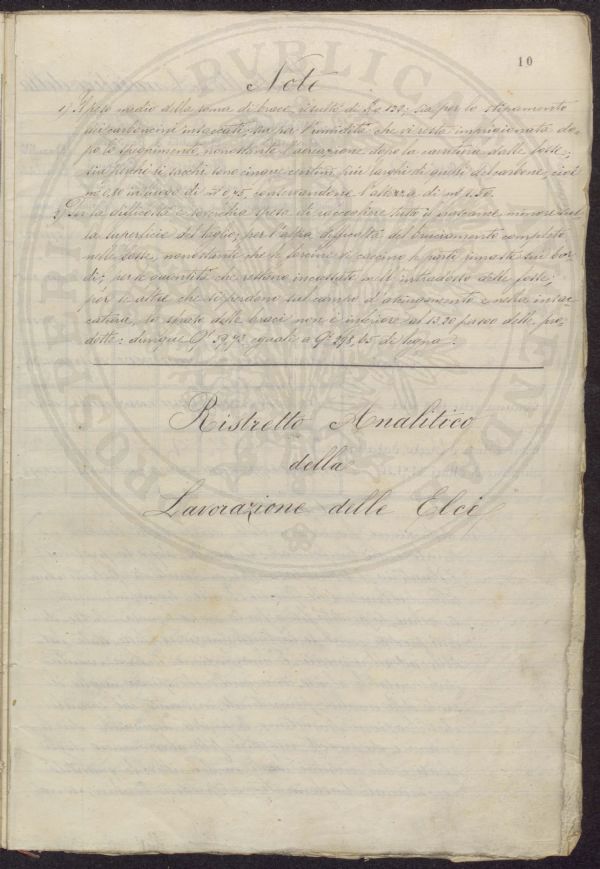 10
Note
1) Il peso medio della soma di brace, risultò di Kg 130; sia per lo stipamento
dei carboncini intaccati, sia per l'umidità che vi resta imprigionata do-
po lo spegnimento, nonostante l'aereazione dopo la cavatura dalle fosse;
sia perchè i sacchi sono cinque centim. più larghi di quelli del carbone, cioè
m 0,80 in luogo di m 0,75, conservandone l'altezza di m 1,50.
2) Per la difficoltà e soverchia spesa di raccogliere tutto il materiale minore sul
la superficie del taglio; per l'altra difficoltà del bruciamento completo
nelle fosse, nonostante che le forcine vi caccino le parti rimaste sui bor-
di; per le quantità che restano incollate nell'intradosso delle fosse;
per le altre che si perdono sul campo d' e nella insac-
catura, lo smeto delle braci non è inferiore al 13.20 per 100 delle pro-
dotte: dunque Ql 59,73 eguali a Ql 298,65 di legna.
Ristretto Analitico
della
Lavorazione delle Elci
PROSPERITATI PVBLICAE AVGENDAE